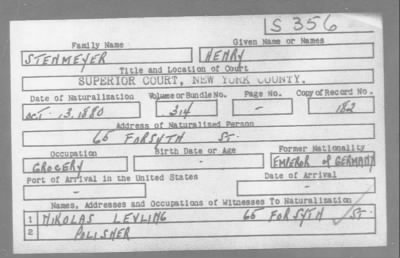 S 356
Family Name Given Name or Names
STENMEYER HENRY
Title and Location of Court
SUPERIOR COURT, NEW YORK COUNTY.
Date of Naturalization Volume or Bundle No. Page No. Copy of Record No.
OCT. 13, 1880 314 - 182
Address of Naturalized Person
65 FORSYTH ST.
Occupation Birth Date or Age Former Nationality
GROCERY - EMPEROR of GERMANY
Port of Arrival in the United States Date of Arrival
- -
Names, Addresses and Occupations of Witnesses To Naturalization
1 NIKOLAS LEYLING 65 FORSYTH ST.
2 POLISHER